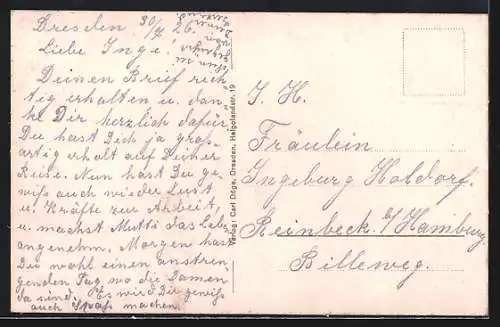 Dresden 30/7 26.
Liebe Inge!
Deinen Brief rich-
tig erhalten u. dan-
ke Dir herzlich dafür.
Du hast Dich ja groß-
artig erholt auf Deiner
Reise. Nun hast Du ge-
wiß auch wieder Lust
u. Kräfte zur Arbeit,
u. machst Mutti das Leben
angenehm. Morgen hast
Du wohl einen anstren-
genden Tag wo die Damen
da sind. Es wird Dir gewiß
auch Spaß machen.
Verlag: Carl Döge, Dresden, Helgolandstr. 19
I. H.
Fräulein
Ingeburg Holdorf.
Reinbeck b/ Hamburg.
Billeweg.